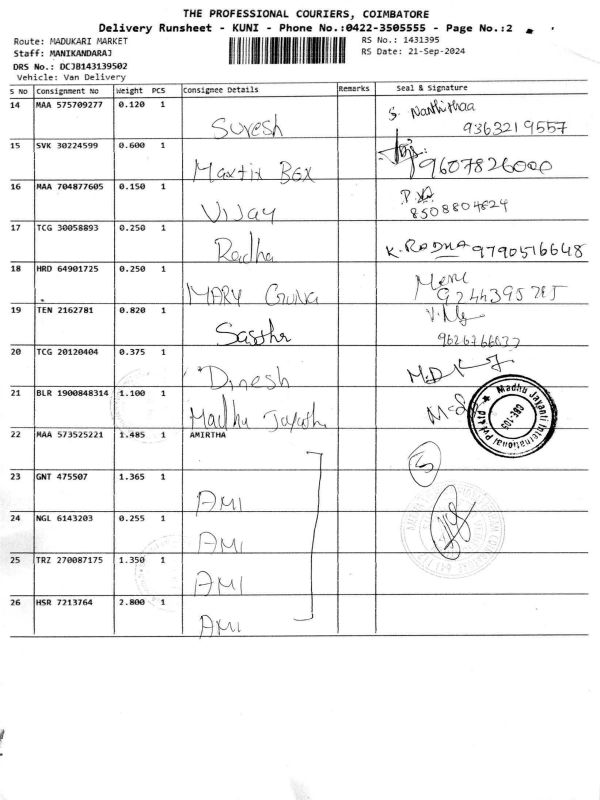 THE PROFESSIONAL COURIERS, COIMBATORE
Delivery Runsheet - KUNI - Phone No.:0422-3505555 - Page No.:2
Route: MADUKARI MARKET
RS No.: 1431395
Staff: MANIKANDARAJ
RS Date: 21-Sep-2024
DRS No.: DCJB143139502
Vehicle: Van Delivery
S No Consignment No Weight PCS Consignee Details Remarks Seal & Signature
14 MAA 575709277 0.120 1
Suresh S. Nanthithaa
9363219557
15 SVK 30224599 0.600 1
Maxtix Bex 9607826000
16 MAA 704877605 0.150 1
Vijay 8508804824
17 TCG 30058893 0.250 1
Radha K. RADHA 9790516648
18 HRD 64901725 0.250 1
MARY GUNA
19 TEN 2162781 0.820 1
Sasthr
20 TCG 20120404 0.375 1
Dinesh
21 BLR 1900848314 1.100 1
Madhu Jayanthi
Madhu Jayanti International Pvt Ltd
CBE-105
22 MAA 573525221 1.485 1 AMIRTHA
5
23 GNT 475507 1.365 1
AMI
24 NGL 6143203 0.255 1
AMI
25 TRZ 270087175 1.350 1
AMI
26 HSR 7213764 2.800 1
AMI